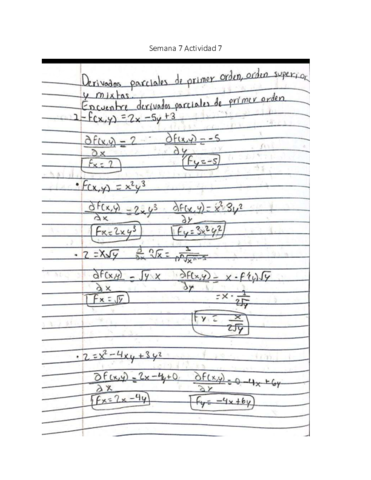 Semana 7 Actividad 7
Derivadas parciales de primer orden, orden superior
y mixtas.
Encuentre derivadas parciales de primer orden
1-F(x,y)=2x-5y+3
∂f(x,y)/∂x = 2    ∂f(x,y)/∂y = -5
Fx=2    Fy=-5
• F(x,y) = x²y³
∂f(x,y)/∂x = 2xy³    ∂f(x,y)/∂y = x²·3y²
Fx=2xy³    Fy=3x²y²
• z=x√y
∂f(x,y)/∂x = √y·x    ∂f(x,y)/∂y = x
= x·1/2√y
Fx=√y
Fy = x/2√y
• z=x²-4xy+3y²
∂f(x,y)/∂x = 2x-4y+0    ∂f(x,y)/∂y = 0-4x+6y
Fx=2x-4y    Fy=-4x+6y